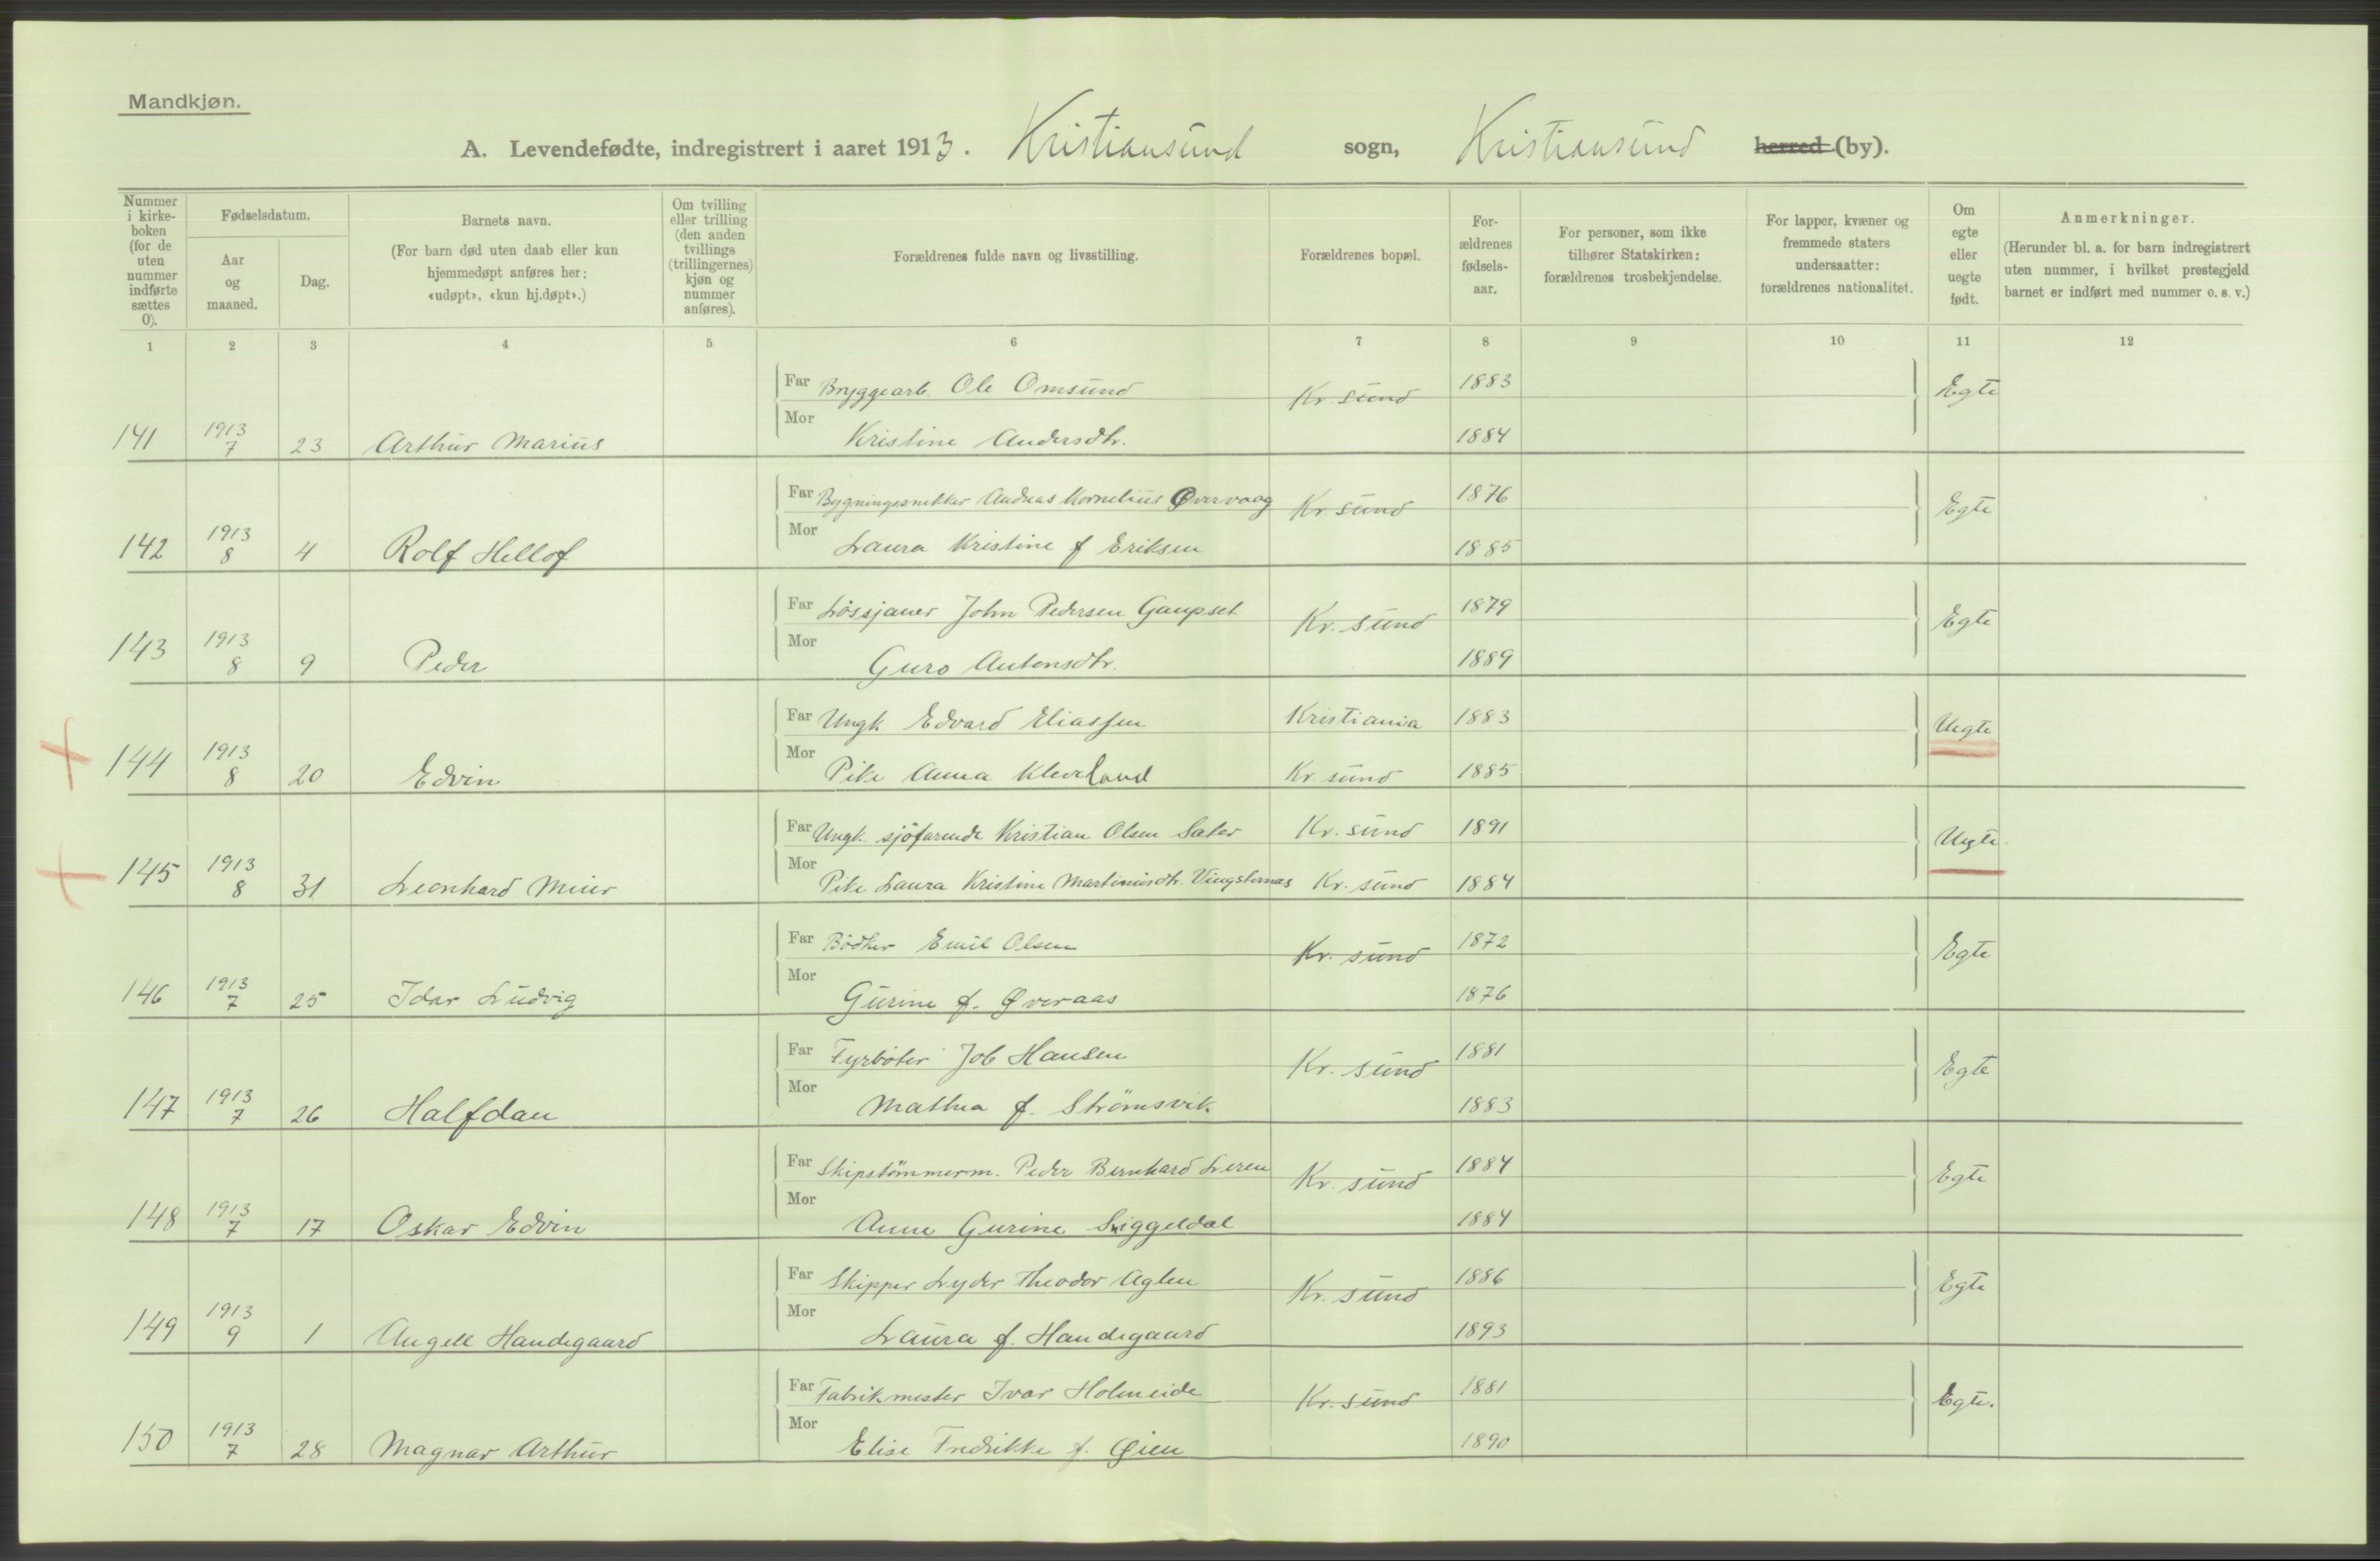 Mandkjøn.
A. Levendefødte, indregistrert i aaret 1913. Kristiansund sogn, Kristiansund herred (by).
Nummer i kirke-boken (for de uten nummer indførte sættes 0).
Fødselsdatum.
Aar og maaned.
Dag.
Barnets navn.
(For barn død uten daab eller kun hjemmedøpt anføres her: «udøpt», «kun hj.døpt».)
Om tvilling eller trilling (den anden tvillings (trillingernes) kjøn og nummer anføres).
Forældrenes fulde navn og livsstilling.
Forældrenes bopæl.
For-ældrenes fødsels-aar.
For personer, som ikke tilhører Statskirken: forældrenes trosbekjendelse.
For lapper, kvæner og fremmede staters undersaatter: forældrenes nationalitet.
Om egte eller uegte født.
Anmerkninger.
(Herunder bl. a. for barn indregistrert uten nummer, i hvilket prestegjeld barnet er indført med nummer o. s. v.)
1 2 3 4 5 6 7 8 9 10 11 12
Far Bryggearb. Ole Omsund Kr. sund 1883 Egte
141 1913 7 23 Arthur Marius Mor Kristine Andersdtr. 1884
Far Bygningssnekker Andreas Kornelius Øvervaag Kr. sund 1876 Egte
142 1913 8 4 Rolf Hellof Mor Laura Kristine f Eriksen 1885
Far Løssjauer John Pedersen Gaupset Kr. sund 1879 Egte
143 1913 8 9 Peder Mor Guro Antonsdtr. 1889
Far Ungk. Edvard Eliassen Kristiania 1883 Uegte
144 1913 8 20 Edvin Mor Pike Anna Kleveland Kr sund 1885
Far Ungk. sjøfarende Kristian Olsen Sater Kr. sund 1891 Uegte
145 1913 8 31 Leonhard Meier Mor Pike Laura Kristine Martinusdtr. Kr. sund 1884
Far Bödker Emil Olsen Kr. sund 1872 Egte
146 1913 7 25 Idar Ludvig Mor Gurine f. Øveraas 1876
Far Fyrböter Job Hansen Kr. sund 1881 Egte
147 1913 7 26 Halfdan Mor Mathea f. Strömsvik 1883
Far Skipstömmerm. Peder Bernhard Leren Kr. sund 1884 Egte
148 1913 7 17 Oskar Edvin Mor Anne Gurine 1884
Far Skipper Lyder Theodor Aglen Kr. sund 1886 Egte
149 1913 9 1 Angell Handegaard Mor Laura f. Handegaard 1893
Far Fabrikmester Ivar Holmeide Kr. sund 1881 Egte.
150 1913 7 28 Magnar Arthur Mor Elise Fredrikke f. Øien 1890